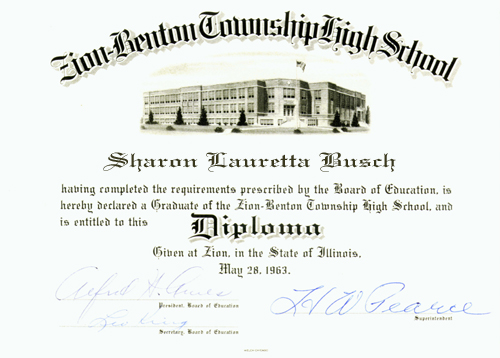 Zion-Benton Township High School
Sharon Lauretta Busch
having completed the requirements prescribed by the Board of Education, is
hereby declared a Graduate of the Zion-Benton Township High School, and
is entitled to this Diploma
Given at Zion, in the State of Illinois,
May 28, 1963.
President, Board of Education
H W Pearce
Superintendent
Secretary, Board of Education